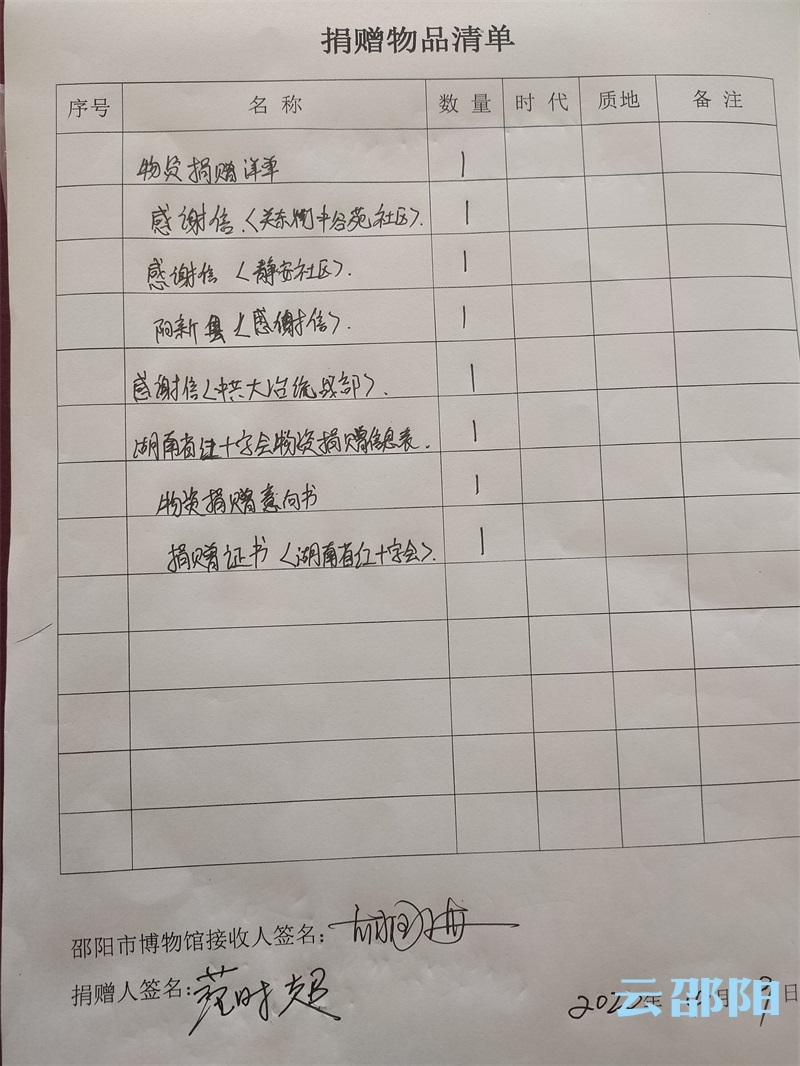 捐赠物品清单
序号 名称 数量 时代 质地 备注
物资捐赠详单 1
感谢信(关东街中谷苑社区). 1
感谢信(静安社区). 1
阳新县(感谢信). 1
感谢信(中共大冶统战部). 1
湖南省红十字会物资捐赠信息表. 1
物资捐赠意向书 1
捐赠证书(湖南省红十字会). 1
邵阳市博物馆接收人签名:
捐赠人签名: 范时超
年 月 日
云邵阳